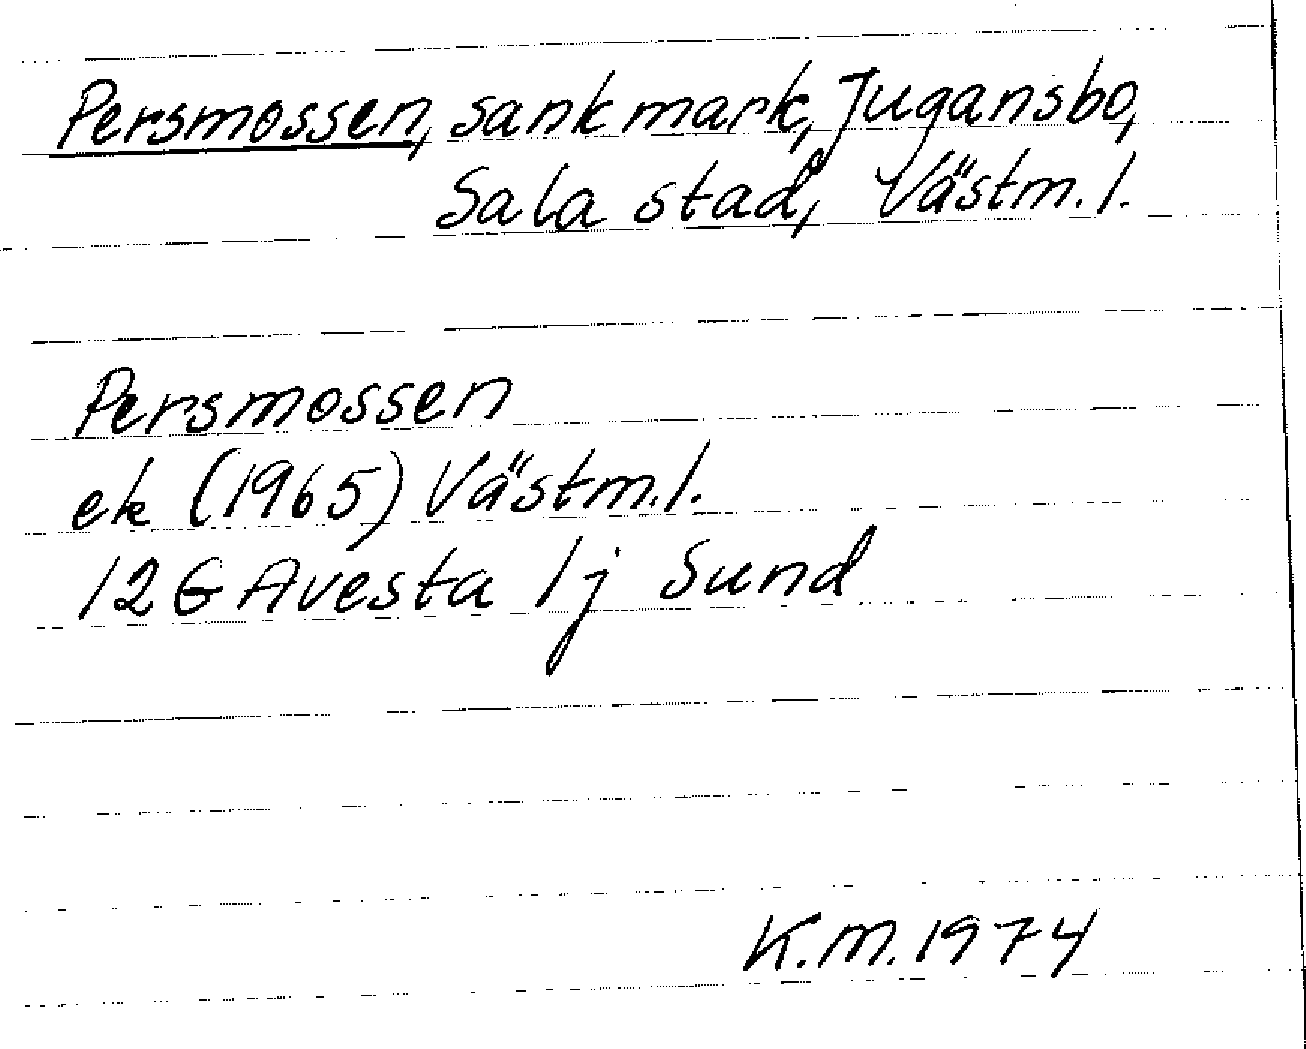 Persmossen, sankmark, Jugansbo,
Sala stad, Västm. l.
Persmossen
ek (1965) Västm. l.
12 G Avesta 1j Sund
K.M. 1974